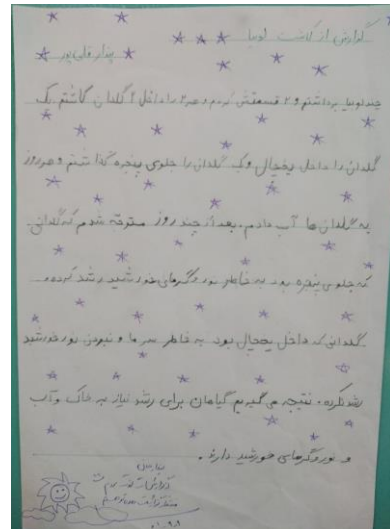 گزارش از کاشت لوبیا
پندار قلی پور
چند لوبیا برداشتم و ۲ قسمتش کردم و هر ۲ را داخل ۲ گلدان کاشتم یک
گلدان را داخل یخچال و یک گلدان را جلوی پنجره گذاشتم و هر روز
به گلدان ها آب دادم. بعد از چند روز متوجه شدم که گلدانی
که جلوی پنجره بود به خاطر نور و گرمای خورشید رشد کرده و
گلدانی که داخل یخچال بود به خاطر سرما و نبودن نور خورشید
رشد نکرده. نتیجه می گیریم گیاهان برای رشد نیاز به خاک و آب
و نور و گرمای خورشید دارند.